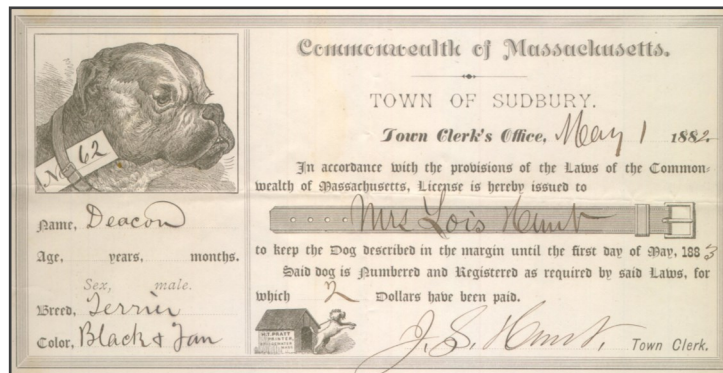 No. 62
Name, Deacon
Age, years, months.
Sex, male.
Breed, Terrier
Color, Black & Tan
Commonwealth of Massachusetts.
TOWN OF SUDBURY.
Town Clerk's Office, May 1 1882.
In accordance with the provisions of the Laws of the Common-
wealth of Massachusetts, License is hereby issued to
Mrs Lois Hunt
to keep the Dog described in the margin until the first day of May, 1883
Said dog is Numbered and Registered as required by said Laws, for
which 2 Dollars have been paid.
H.T. PRATT
PRINTER,
J. S. Hunt, Town Clerk.